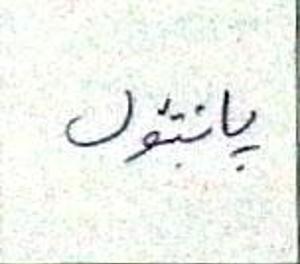 پانتؤل